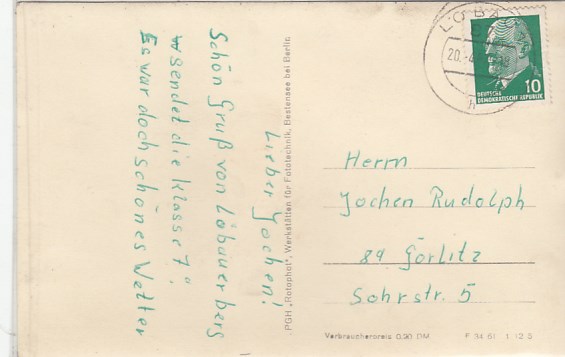 Lieber Jochen!
Schön Gruß von Löbauerberg
sendet die Klasse 7.
Es war doch schönes Wetter
PGH „Rotophot", Werkstätten für Fototechnik, Bestensee bei Berlin
LÖBAU
20.
h
10
DEUTSCHE
DEMOKRATISCHE REPUBLIK
Herrn
Jochen Rudolph
89 Görlitz
Sohrstr. 5
Verbraucherpreis 0,20 DM
F 34 61 1 12 5